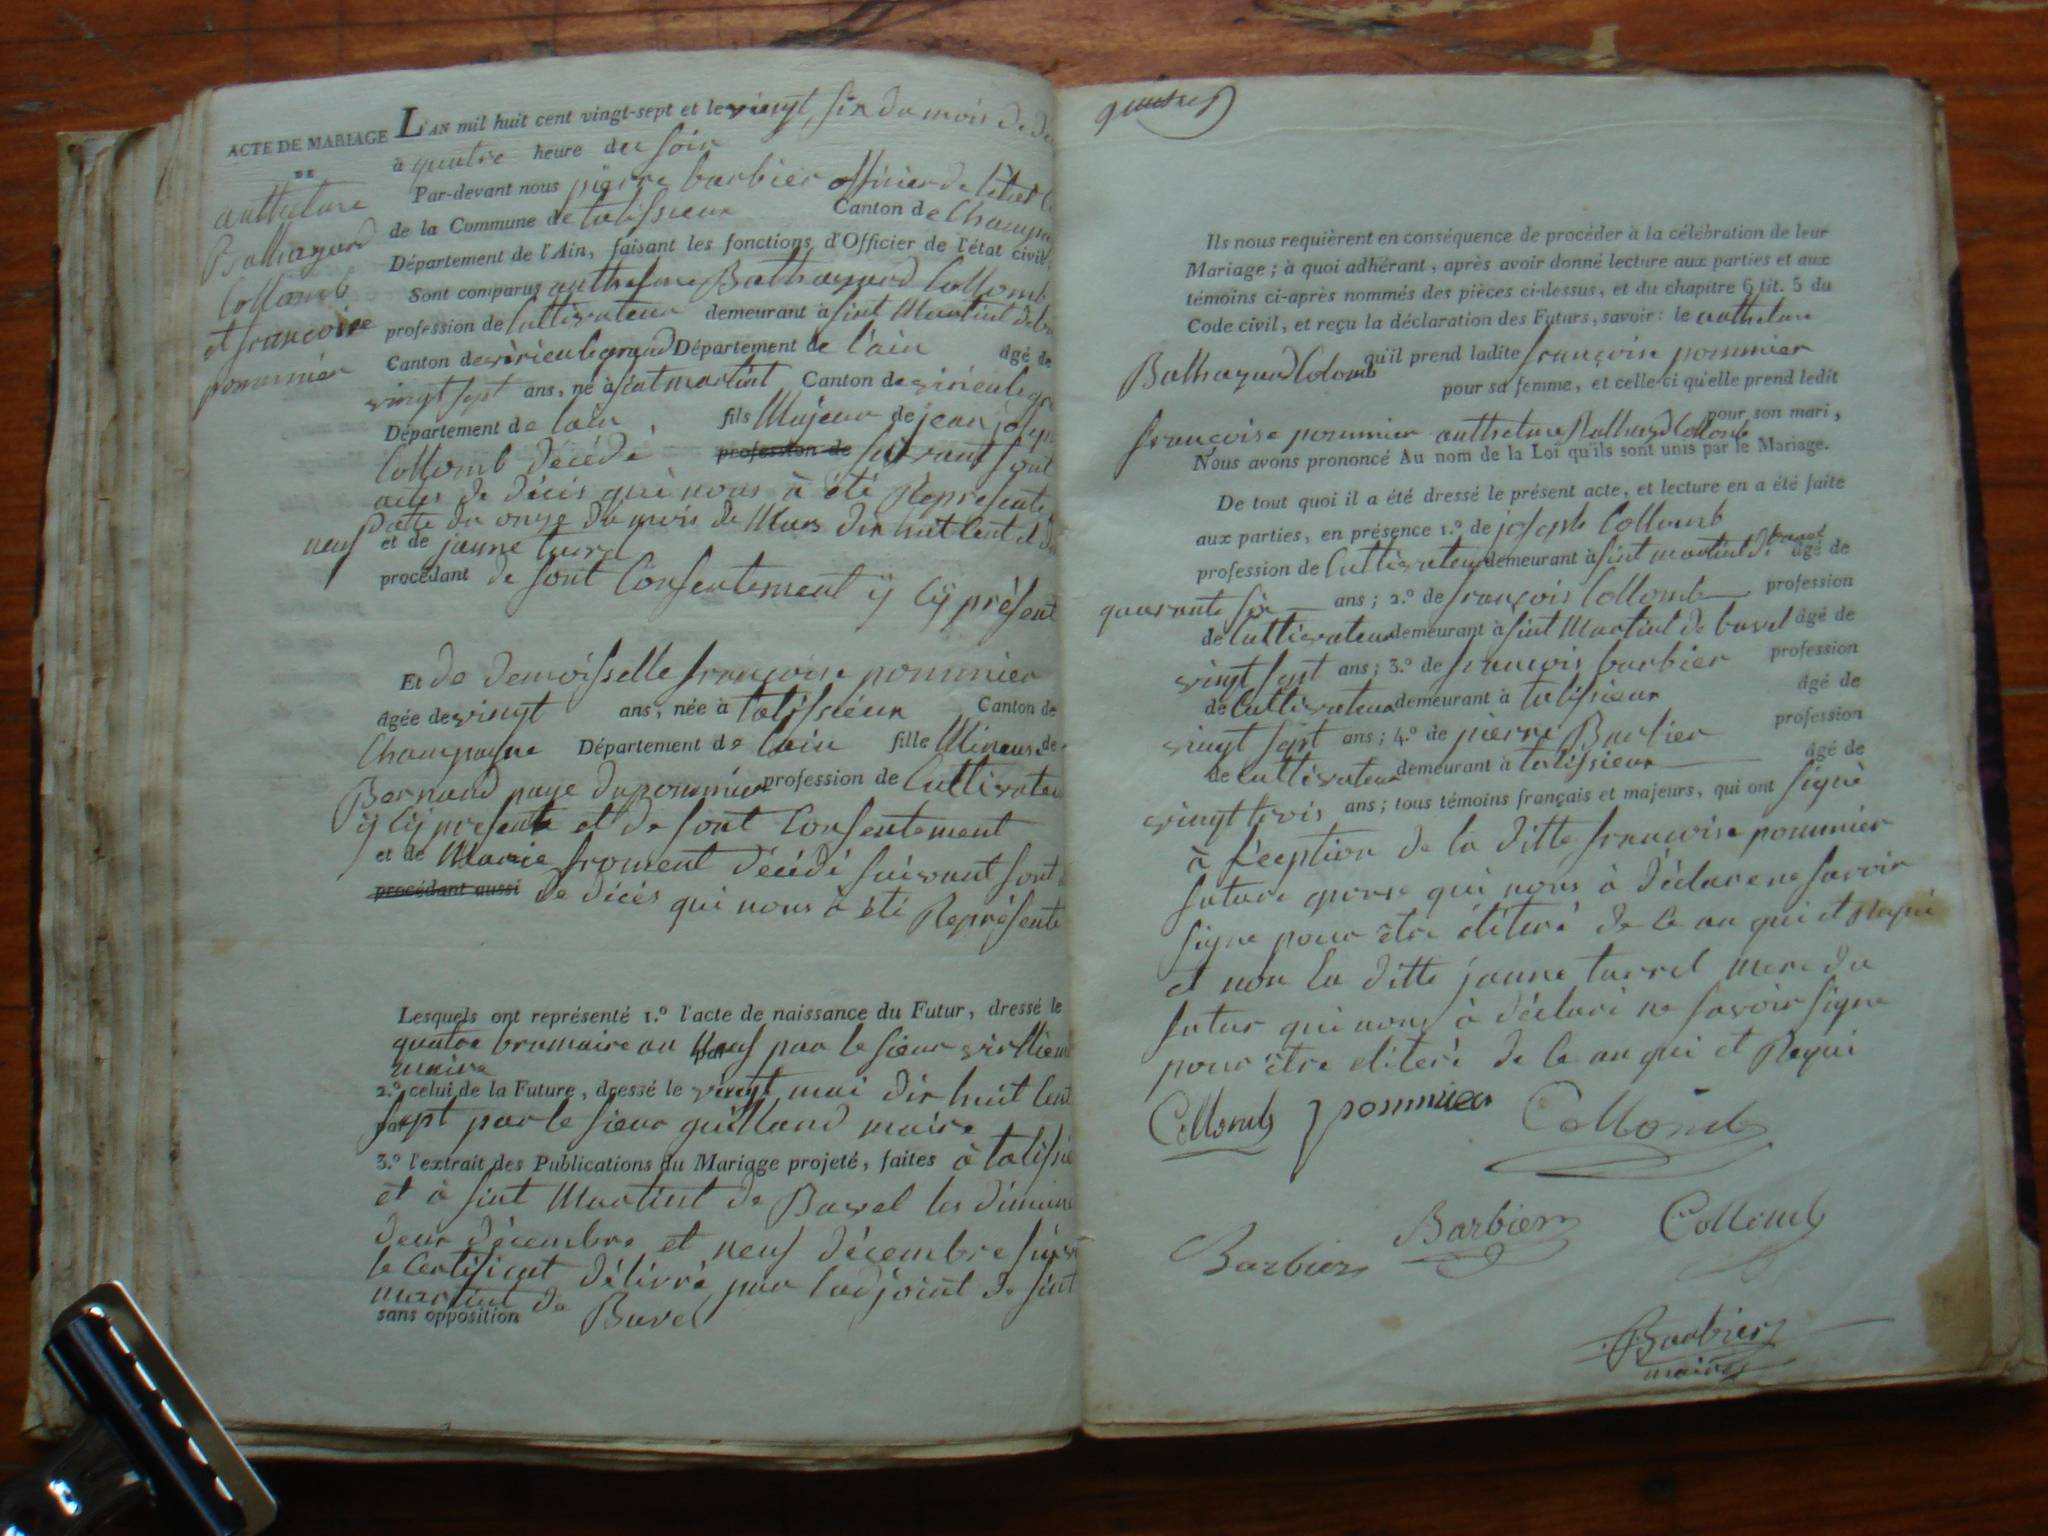 ACTE DE MARIAGE
DE
anthelme
Balthazard
Collomb
et françoise
pommier
L'AN mil huit cent vingt-sept et le vingt six du mois de
à quatre heure deu soir
Par-devant nous pierre barbier officier de l'état
de la Commune de talissieux Canton de Champ
Département de l'Ain, faisant les fonctions d'Officier de l'état civil
Sont comparus anthelme Balthazard Collomb
profession de Cultivateur demeurant à sint Martint de
Canton de virieu le grand Département de l'ain âgé de
vingt sept ans, né à sint martint Canton de virieu le gr
Département de lain fils Majeur de jean joseph
Collomb décédé profession de suivant sont
actes de décès qui nous à été Représente
Date du onze du mois de Mars dix huit Cent et
neuf et de janne
procédant de sont Consentement y Cy présent
Et de demoisselle françoise pommier
âgée de vingt ans, née à talissieux Canton de
Champagne Département de lain fille Mineure de
Bernard pommier profession de Cultivateur
y Cy present et de sont Consentement
et de Marie froment décédé suivant sont
procédant aussi de décès qui nous à été Représente
Lesquels ont représenté 1.° l'acte de naissance du Futur, dressé le
quatre brumaire an Neuf par le sieur
par
maire
2.° celui de la Future, dressé le vingt mai dix huit Cent
sept par le sieur guilland maire
3.° l'extrait des Publications du Mariage projeté, faites à talissie
et à sint Martint de Bavel les dimanc
deux décembre et neuf décembre
le Certificat délivré par ladjoint de sint
martint de Bavel
sans opposition
Ils nous requièrent en conséquence de procéder à la célébration de leur
Mariage ; à quoi adhérant, après avoir donné lecture aux parties et aux
témoins ci-après nommés des pièces ci-dessus, et du chapitre 6 tit. 5 du
Code civil, et reçu la déclaration des Futurs, savoir : le anthelme
Balthazard Colomb qu'il prend ladite françoise pommier
pour sa femme, et celle-ci qu'elle prend ledit
françoise pommier anthelme Balthazard Collomb pour son mari,
Nous avons prononcé Au nom de la Loi qu'ils sont unis par le Mariage.
De tout quoi il a été dressé le présent acte, et lecture en a été faite
aux parties, en présence 1.° de joseph Collomb
profession de Cultivateur demeurant à sint martint de bavel âgé de
quarante six ans ; 2.° de françois Collomb profession
de Cultivateur demeurant à sint Martint de bavel âgé de
vingt sept ans ; 3.° de françois barbier profession
de Cultivateur demeurant à talissieux âgé de
vingt sept ans ; 4.° de pierre Barbier profession
de Cultivateur demeurant à talissieux âgé de
vingt trois ans ; tous témoins français et majeurs, qui ont signé
à l'éception de la ditte françoise pommier
future eponse qui nous à déclare ne savoir
signe pour être éliteré de ce an qui et Requi
et non la ditte janne turrel mere du
futur qui nous à déclaré ne savoir signe
pour être eliteré de ce an qui et Requi
Collomb pommier Collomb
Barbier Barbier Collomb
Barbier
maire